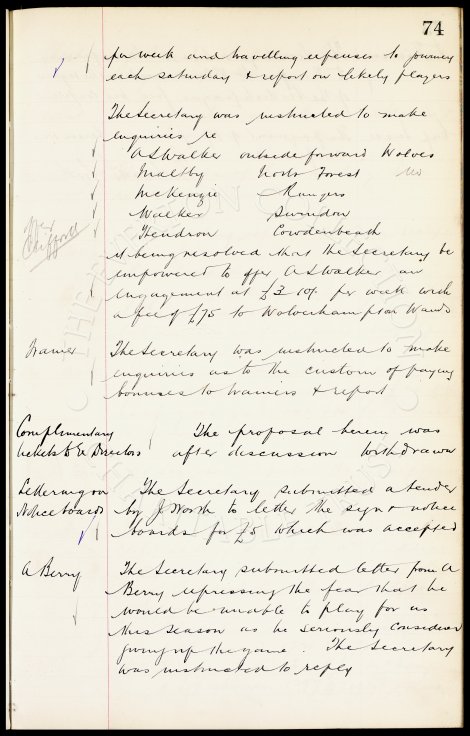 74
per week and travelling expenses to journey
each Saturday & report on likely players
The Secretary was instructed to make
enquiries re
A S Walker outside forward Wolves
Maltby Notts Forest No
McKenzie Rangers
Walker Swindon
Hendron Cowdenbeath
Clifford
it being resolved that the Secretary be
empowered to offer A S Walker an
engagement at £3.10/- per week with
a fee of £75 to Wolverhampton Wands
Trainer The Secretary was instructed to make
enquiries as to the custom of paying
bonuses to trainers & report
Complimentary The proposal herein was
tickets to Ex Directors after discussion withdrawn
Lettering on The Secretary submitted a tender
Notice boards by J Worth to letter the sign & notice
boards for £5 which was accepted
A Berry The Secretary submitted letter from A
Berry expressing the fear that he
would be unable to play for us
this season as he seriously considered
giving up the game. The Secretary
was instructed to reply